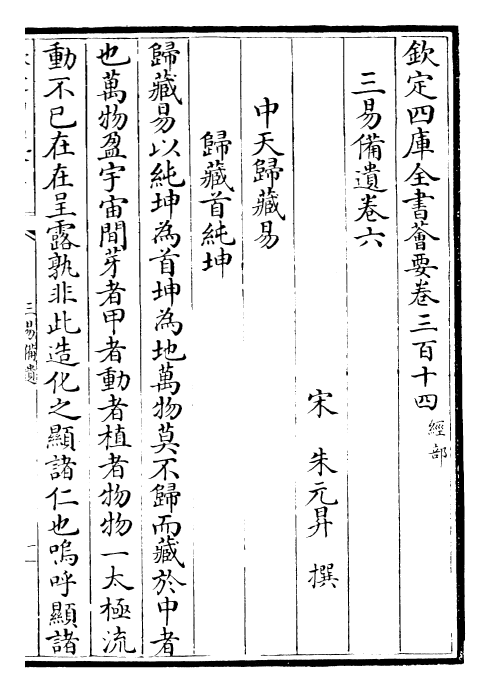 欽定四庫全書薈要卷三百十四 經部
三易備遺卷六
宋 朱元昇 撰
中天歸藏易
歸藏首純坤
歸藏易以純坤為首坤為地萬物莫不歸而藏於中者
也萬物盈宇宙間芽者甲者動者植者物物一太極流
動不已在在呈露孰非此造化之顯諸仁也嗚呼顯諸
三易備遺